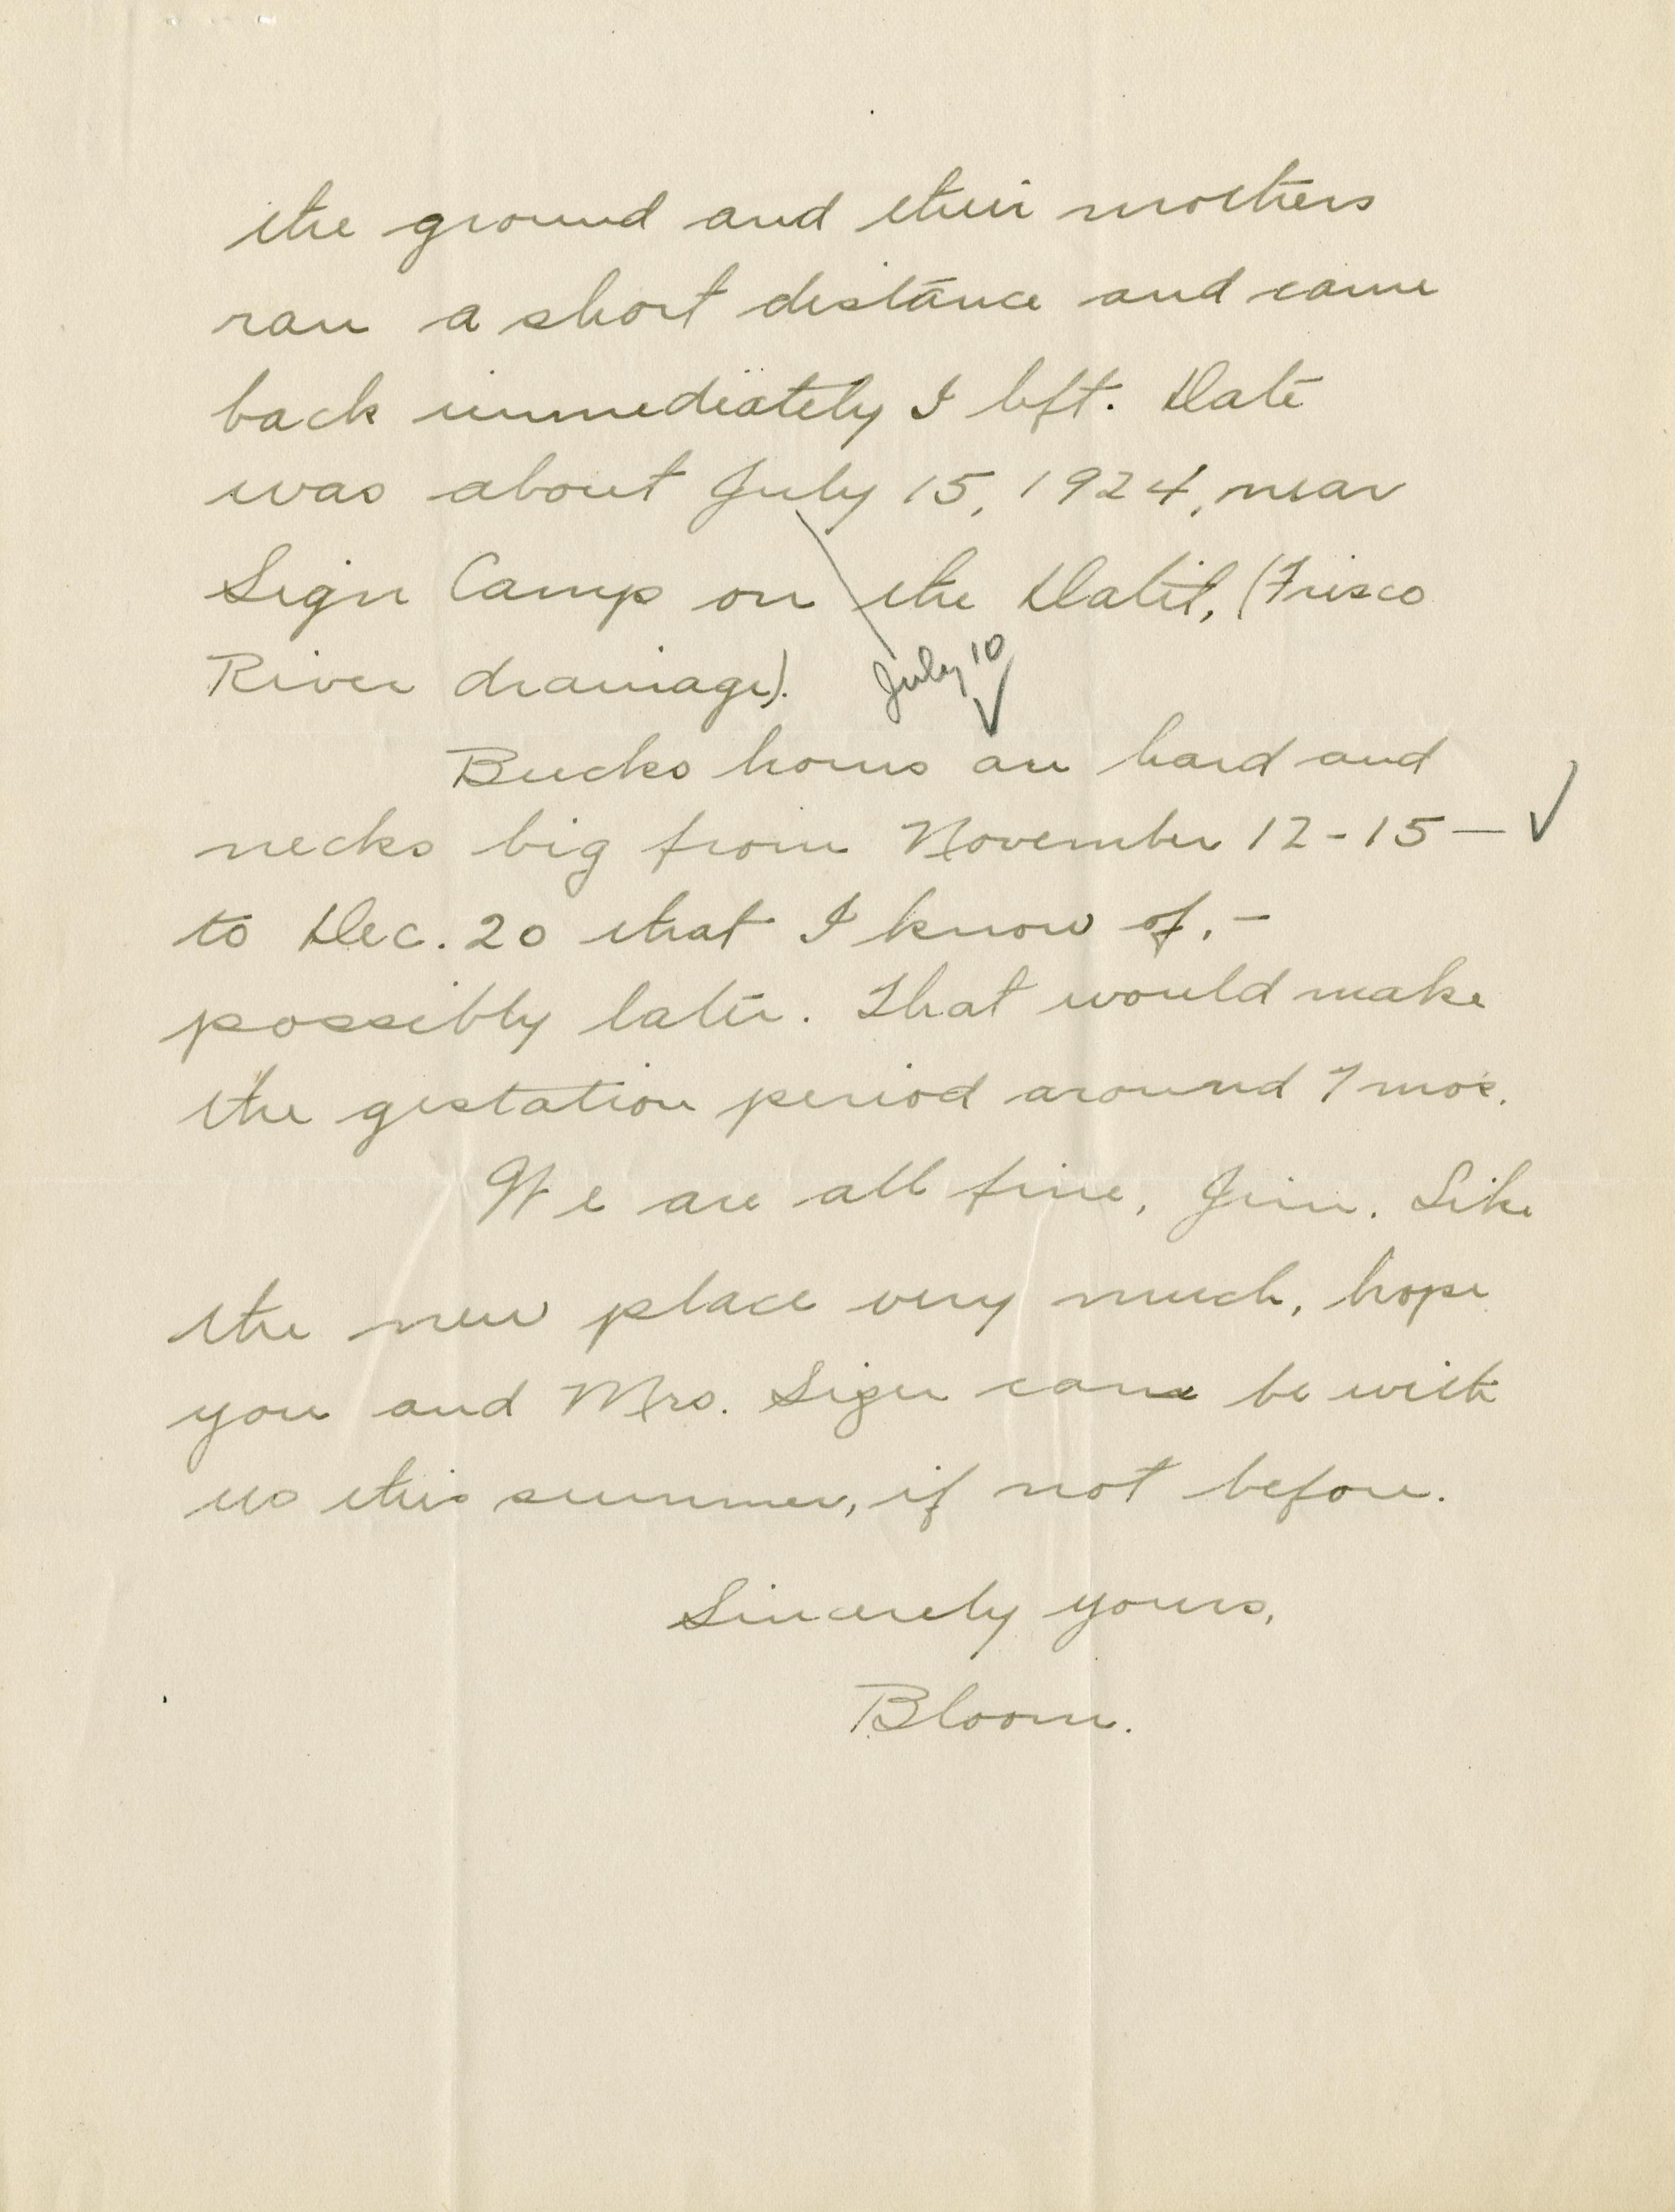 the ground and their mothers
ran a short distance and came
back immediately I left. Date
was about July 15, 1924, near
Sign Camp on the Datil, (Frisco
River drainage).
July 10
Bucks horns are hard and
necks big from November 12-15—
to Dec. 20 that I know of,-
possibly later. That would make
the gestation period around 7 mos.
We are all fine, Jim. Like
the new place very much, hope
you and Mrs. Sizer can be with
us this summer, if not before.
Sincerely yours,
Bloom.